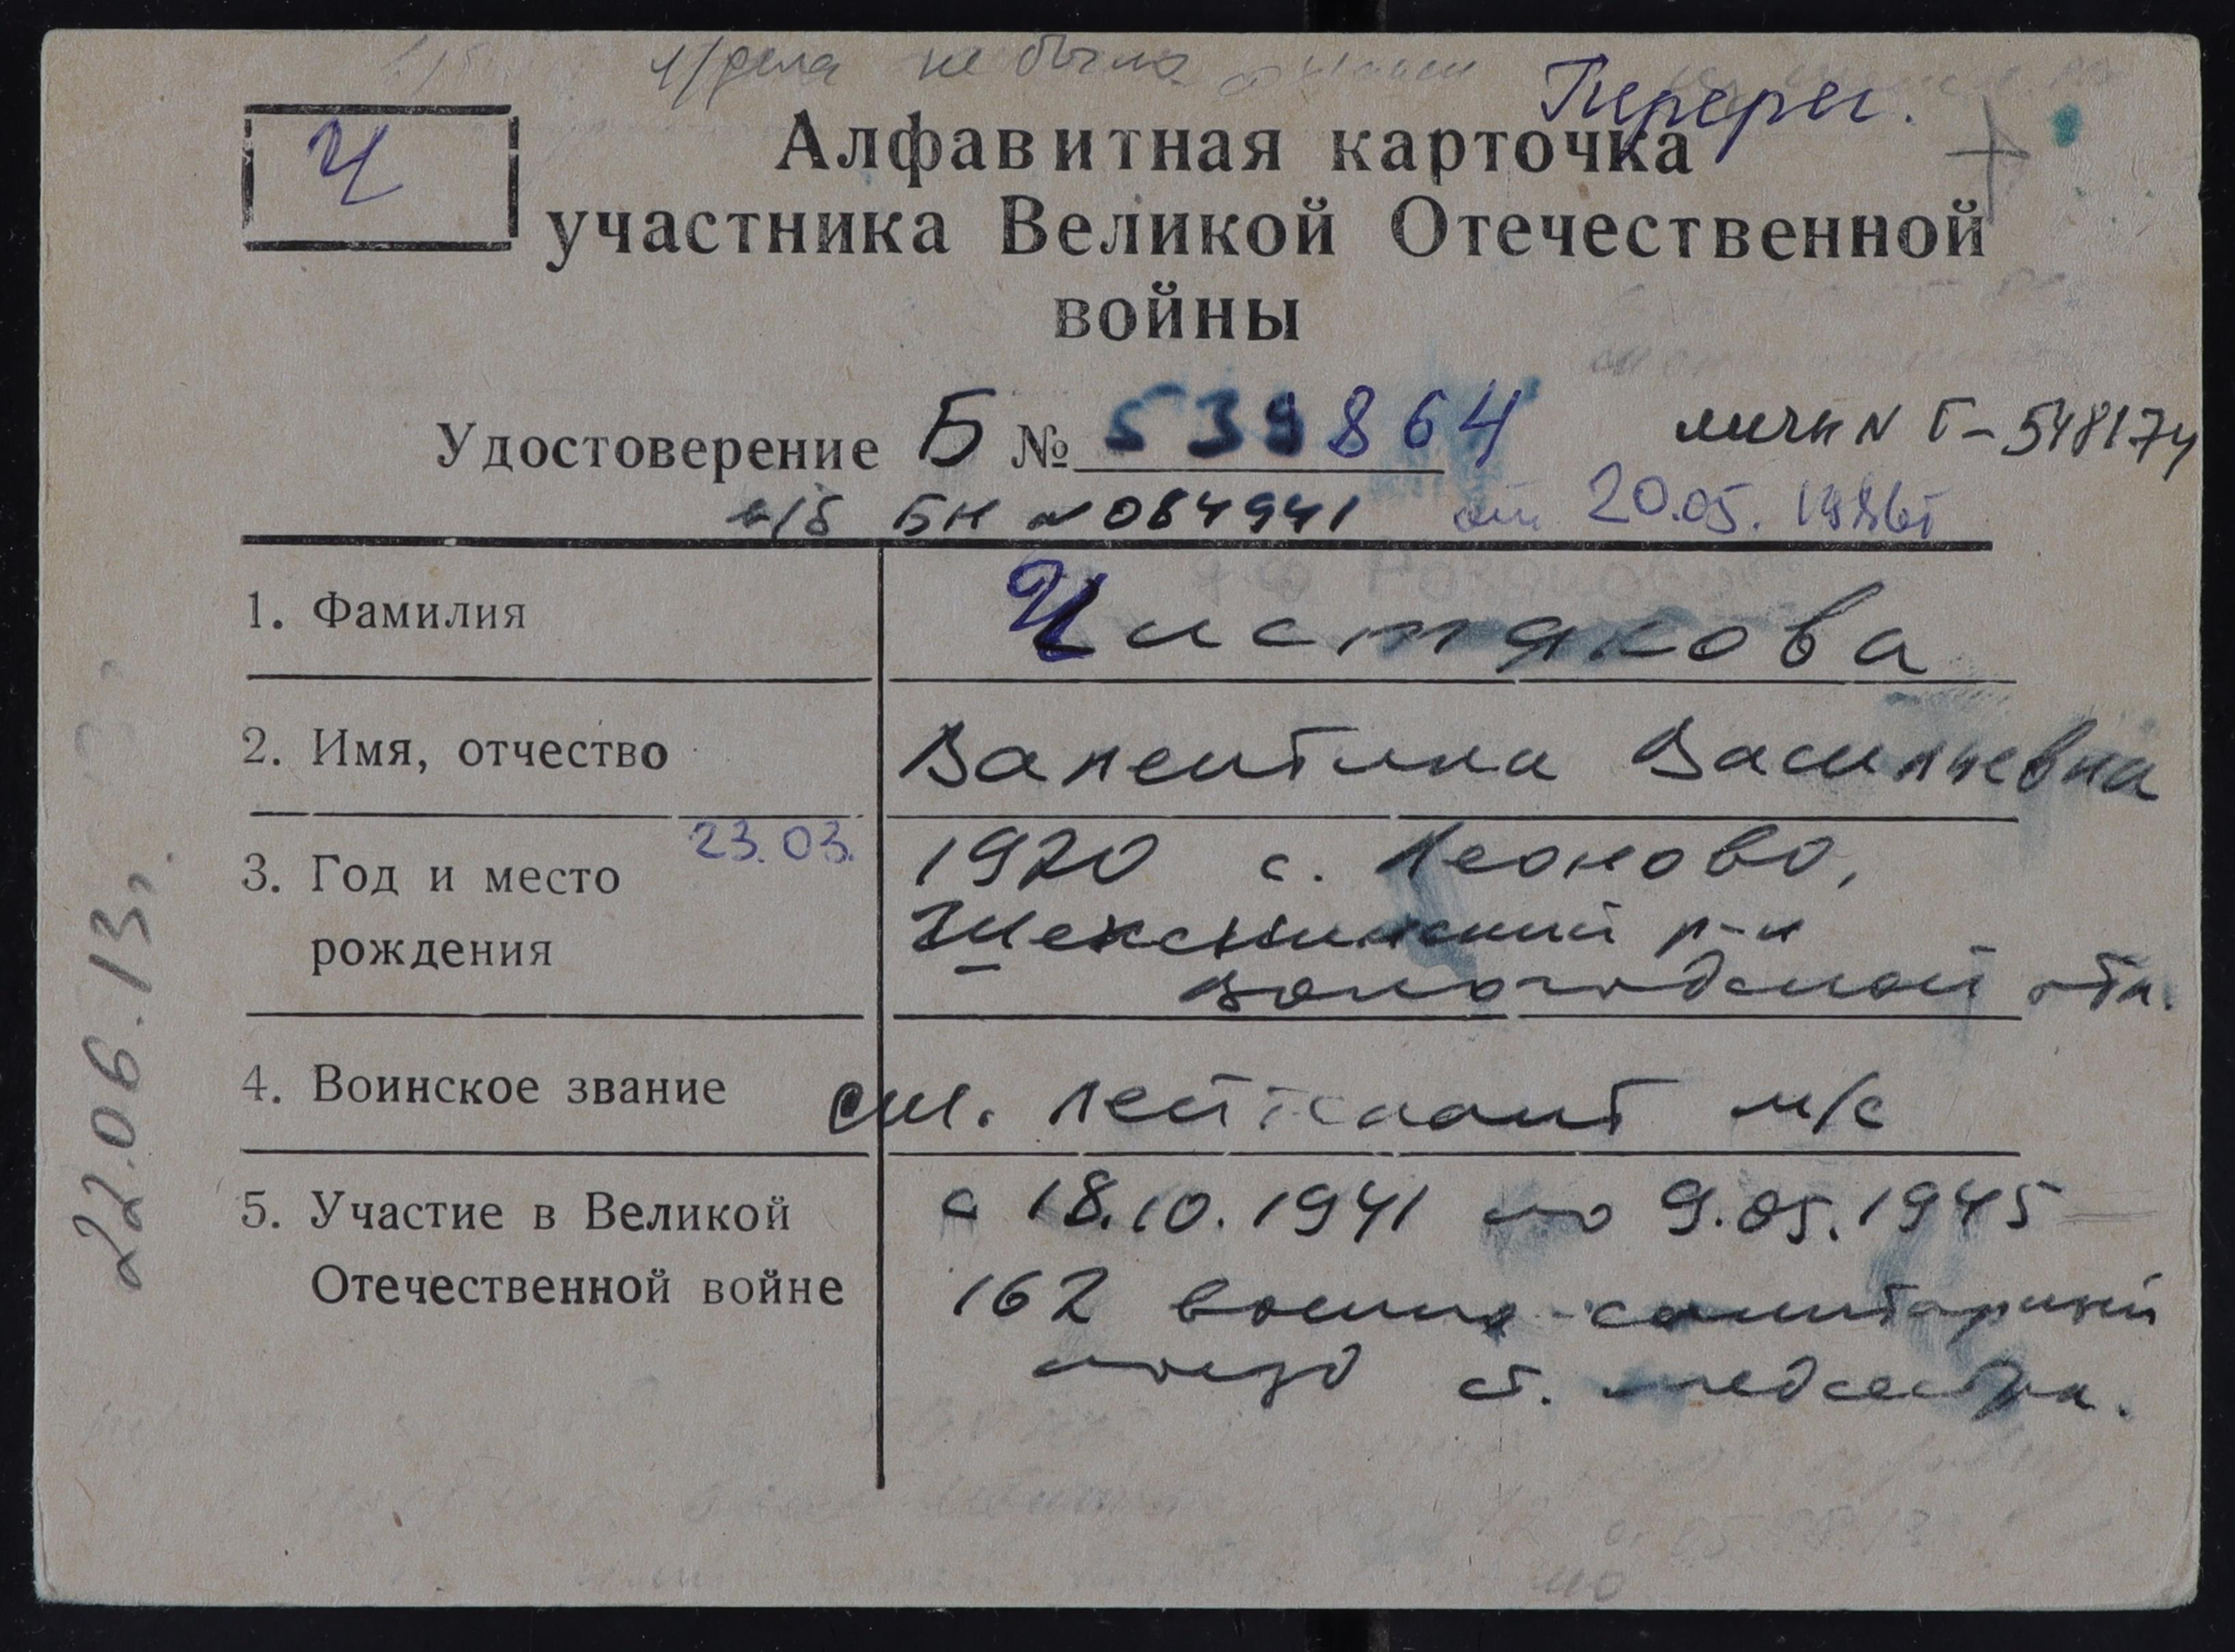 л/дела не было
Перерег.
Ч
Алфавитная карточка
участника Великой Отечественной
войны
Удостоверение Б № 539864
личн N Г-548174
в/б БН N 064941 от 20.05. 1986г
1. Фамилия
Чистякова
2. Имя, отчество
Валентина Васильевна
3. Год и место
рождения
23.03.
1920 с. Леоново,
Шекснинский р-н
Вологодской обл.
4. Воинское звание
ст. лейтенант м/с
5. Участие в Великой
Отечественной войне
с 18.10.1941 по 9.05.1945
162 военно-санитарный
поезд ст. медсестра.
22.06.13г.